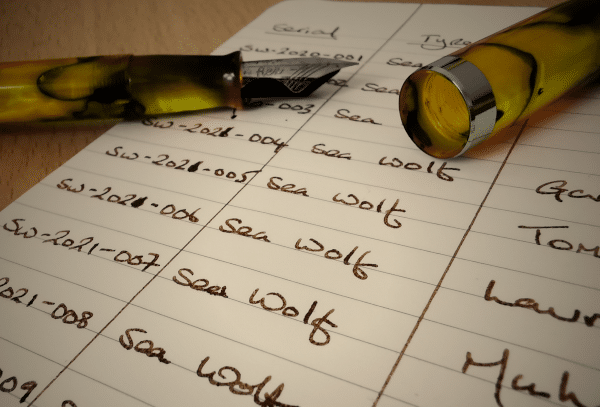 Serial Type
SW-2020-001 Sea
Sea
-003 Sea
SW-2021-004 Sea Wolf
SW-2021-005 Sea Wolf
SW-2021-006 Sea Wolf Tom
SW-2021-007 Sea Wolf
2021-008 Sea Wolf
009